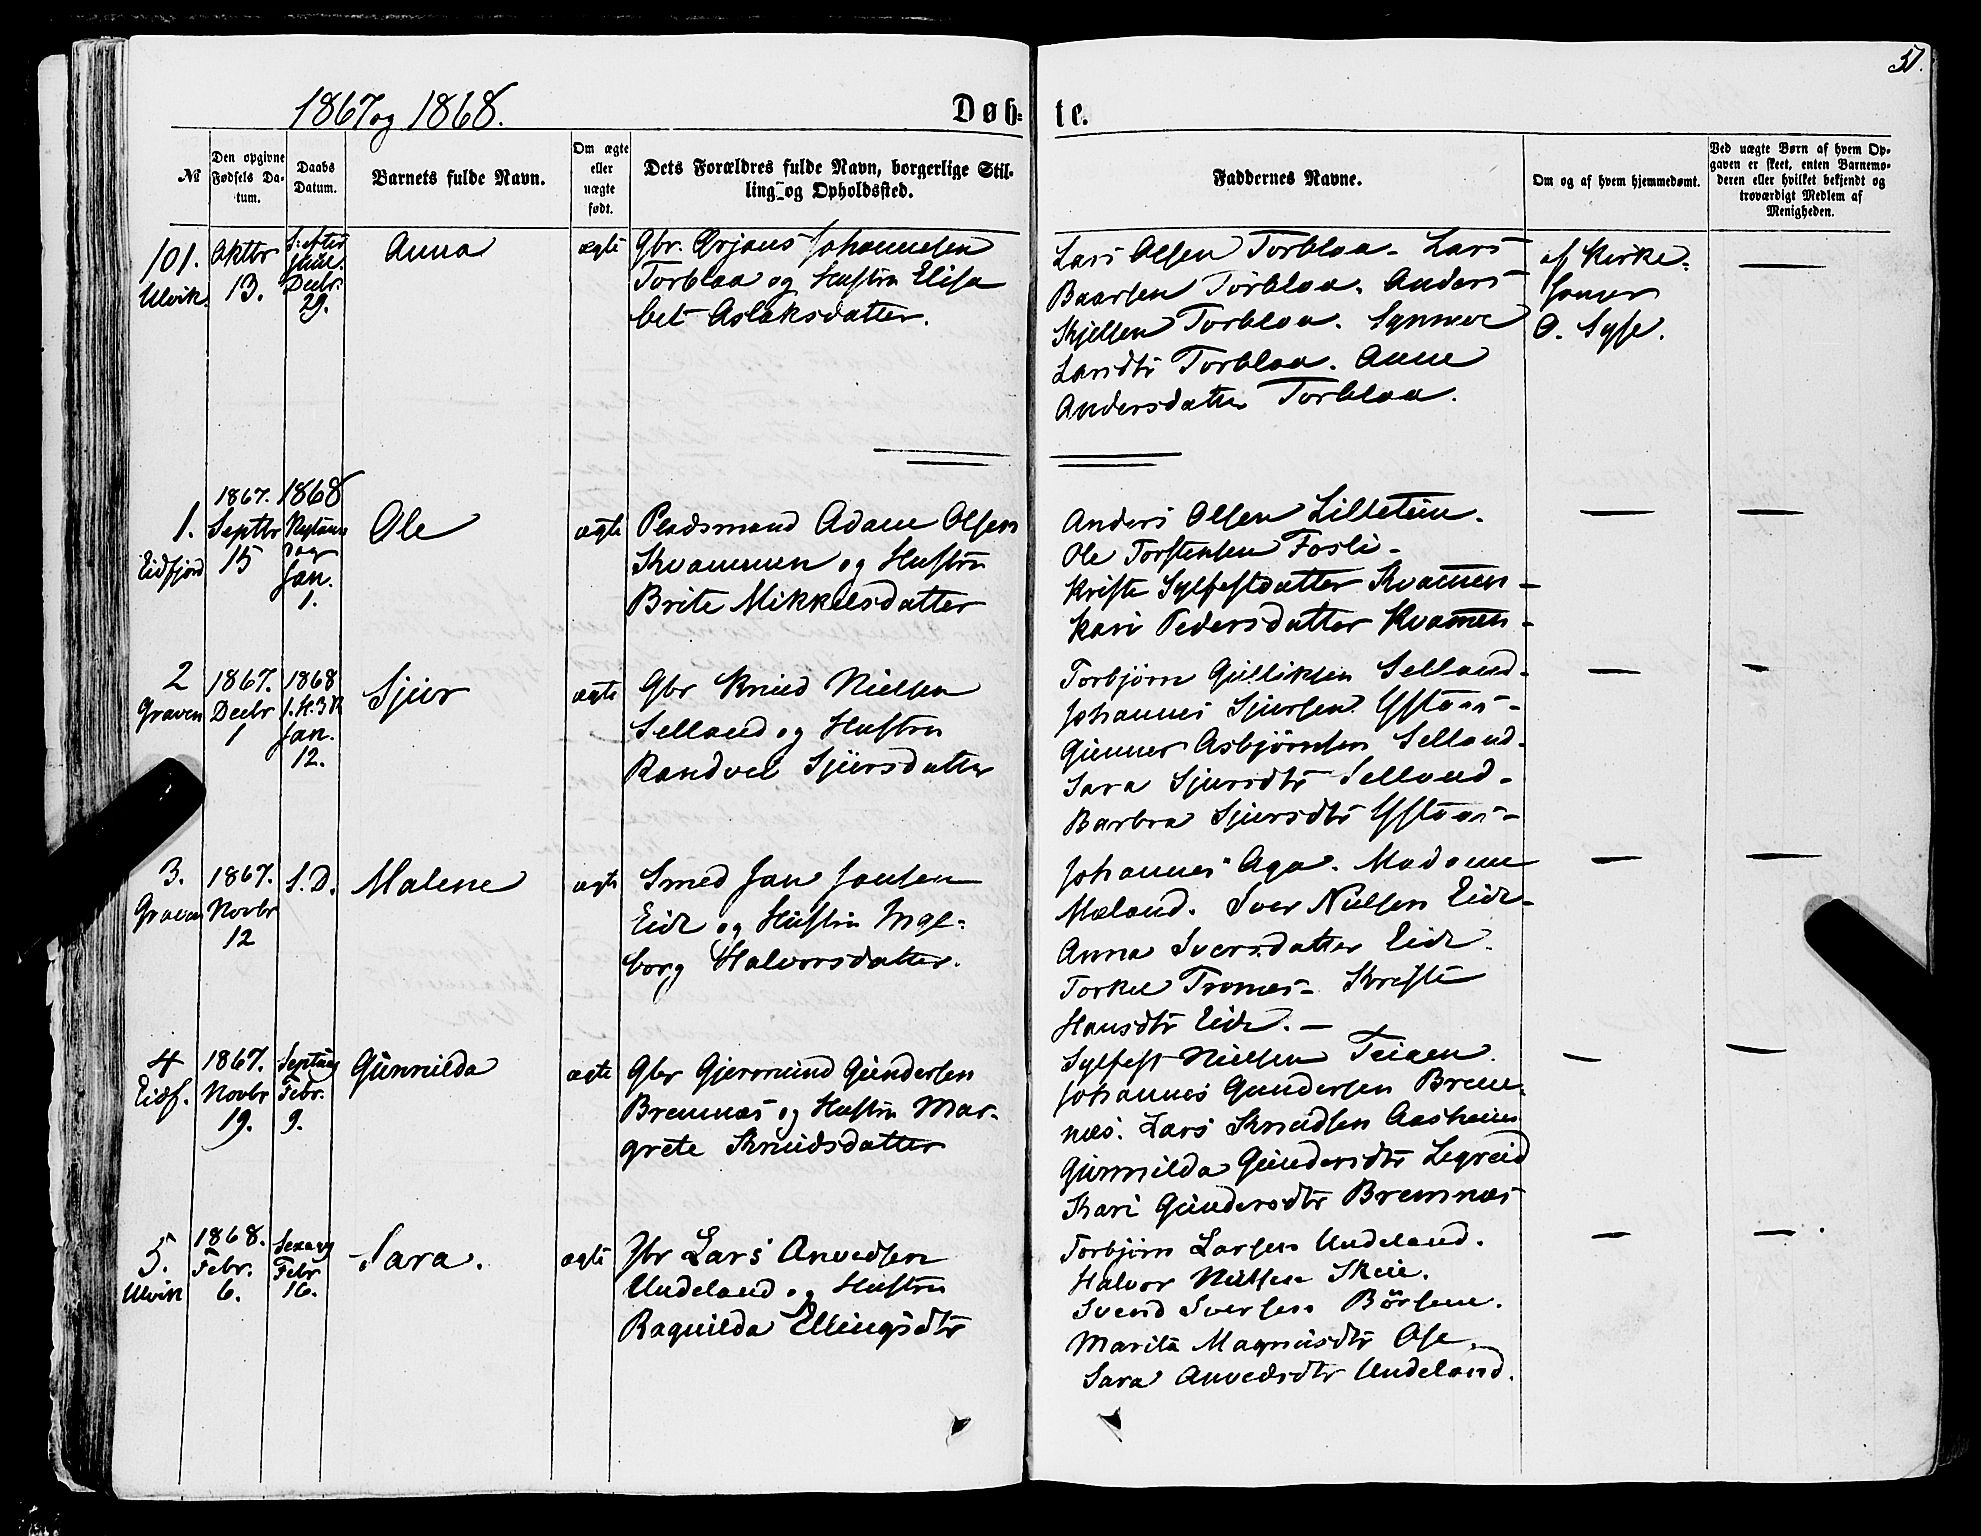 51.
1867 og 1868.
Døb-
te.
№
Den opgivne
Fødsels Da-
tum.
Daabs
Datum.
Barnets fulde Navn.
Om ægte
eller
uægte
født.
Dets Forældres fulde Navn, borgerlige Stil-
ling og Opholdssted.
Faddernes Navne.
Om og af hvem hjemmedømt.
Ved uægte Børn af hvem Op-
gaven er skeet, enten Barnemo-
deren eller hvilket bekjendt og
troværdigt Medlem af
Menigheden.
101.
Ulvik.
Oktbr
13.
S. efter
Juul.
Decbr.
29.
Anna
ægte
Gbr. Ørjans Johannesen
Torblaa og Hustru Elisa
bet Aslaksdatter.
Lars Olsen Torblaa. Lars
Baarsen Torblaa. Anders
Kjelsen Torblaa. Synneve
Larsdtr Torblaa. Anne
Andersdatter Torblaa.
af Kirke-
sanger
O. Syse.
1.
Eidfjord
1867.
Septbr
15
1868
Nytaars
dag
Jan.
1.
Ole
ægte
Pladsmand Adam Olsen
Kvammen og Hustru
Brite Mikkelsdatter
Anders Olsen Lilletun.
Ole Torstensen Fosli-
Kriste Sylfestdatter Kvamen-
Kari Pedersdatter Kvamen-
2
Graven
1867.
Decbr
1
1868
1. S. 3 K
Jan.
12.
Sjur
ægte
Gbr Knud Nielsen
Selland og Hustru
Randvei Sjursdatter
Torbjörn Gulliksen Selland-
Johannes Sjursen Ystaas-
Gunner Asbjörnsen Selland-
Sara Sjursdtr Selland-
Barbra Sjursdtr Ystaas-
3.
Graven
1867.
Novbr
12
S. D.
Malene
ægte
Smed Jan Jansen
Eide og Hustru Inge-
borg Halvorsdatter.
Johannes Aga. Madame
Mæland. Iver Nielsen Eide-
Anna Iversdatter Eide.
Torkel Tromes- Kriste
Hansdtr Eide.-
4
Eidf.
1867.
Novbr
19.
Septuag
Febr.
9.
Gunnilda
ægte
Gbr Gjermund Gundersen
Bremnæs og Hustru Mar-
grete Knudsdatter
Sylfest Nielsen Teigen.
Johannes Gundersen Brem-
næs. Lars Knudsen Aasheim
Gunnilda Gundersdtr Legreid
Kari Gundersdtr Bremnæs
5.
Ulvik
1868.
Febr.
6.
Sexag
Febr
16.
Sara.
ægte
Gbr Lars Anvedsen
Undeland og Hustru
Ragnilda Ellingsdtr
Torbjörn Larsen Undeland.
Halvor Nielsen Skeie.
Svend Iversen Börsem.
Marita Magnusdtr Ose.
Sara Anvedsdtr Undeland.